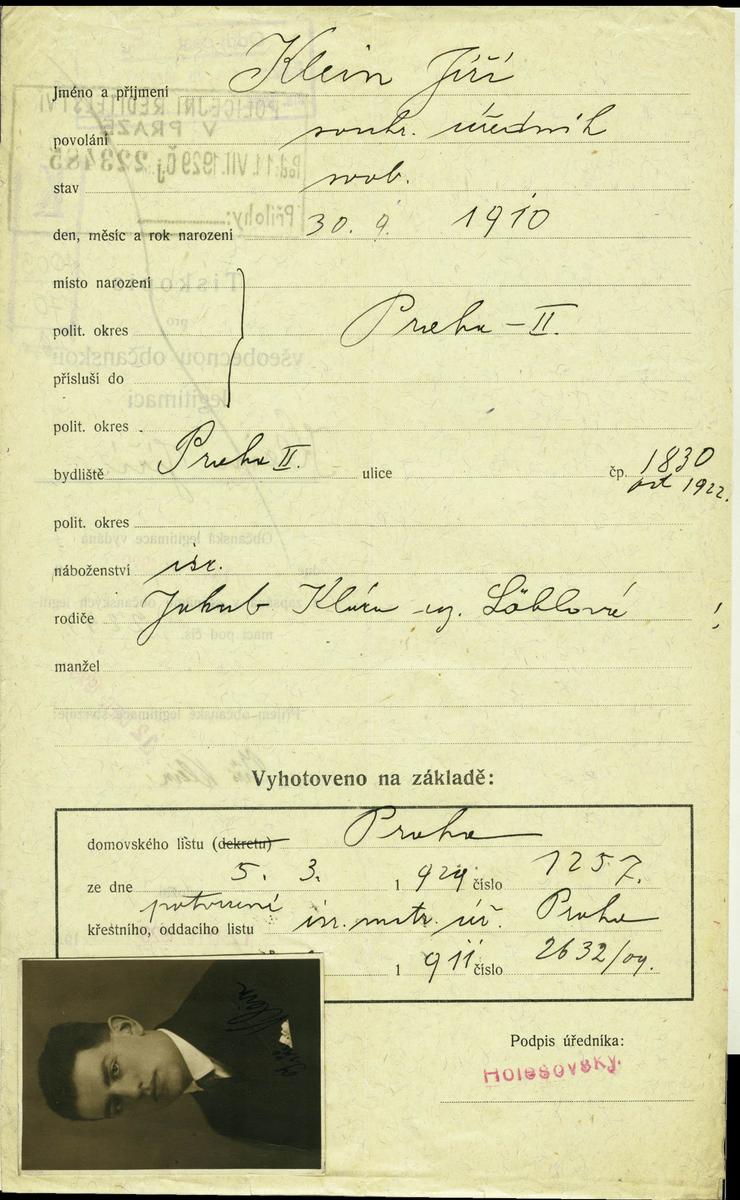 Jméno a příjmení Klein Jiří
povolání soukr. úředník
stav svob.
den, měsíc a rok narození 30. 9. 1910
místo narození
polit. okres Praha - II.
přísluší do
polit. okres
bydliště Praha II. ulice čp. 1830
od 1922.
polit. okres
náboženství isr.
rodiče Jakub Klára roz. Löblová !
manžel
Vyhotoveno na základě:
domovského listu (dekretu) Praha
ze dne 5. 3. 1 929 číslo 1257.
potvrzení
křestního, oddacího listu isr. matr. úř. Praha
1 911 číslo 2632/09.
Podpis úředníka:
Holesovský.
Jiří Klein
POLICEJNÍ ŘEDITELSTVÍ
V PRAZE
Pod: 11. VII. 1929 Čj. 223485
Přílohy:
pro
všeobecnou občanskou
legitimaci
Občanská legitimace vydána
maci pod čís.
Příjem občanské legitimace stvrzuje: